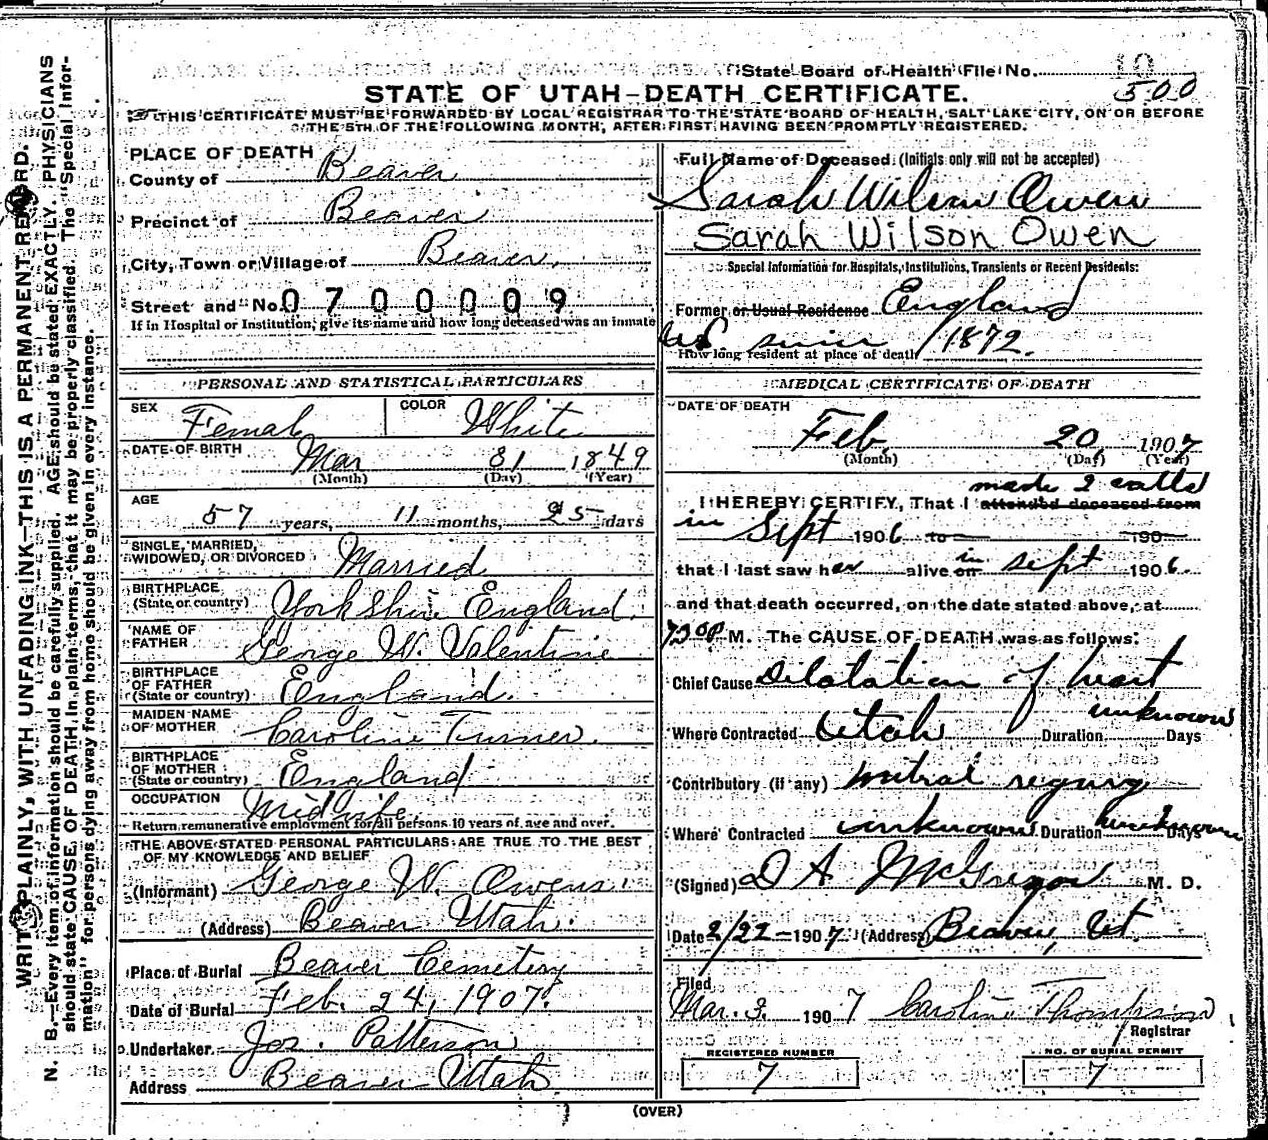 State Board of Health File No. 10
500
STATE OF UTAH—DEATH CERTIFICATE.
THIS CERTIFICATE MUST BE FORWARDED BY LOCAL REGISTRAR TO THE STATE BOARD OF HEALTH, SALT LAKE CITY, ON OR BEFORE
THE 5TH OF THE FOLLOWING MONTH, AFTER FIRST HAVING BEEN PROMPTLY REGISTERED.
WRITE PLAINLY, WITH UNFADING INK—THIS IS A PERMANENT RECORD.
N. B.—Every item of information should be carefully supplied. AGE should be stated EXACTLY. PHYSICIANS
should state CAUSE OF DEATH in plain terms, that it may be properly classified. The "Special Infor-
mation" for persons dying away from home should be given in every instance.
PLACE OF DEATH
County of Beaver
Precinct of Beaver
City, Town or Village of Beaver
Street and No. 0700009
If in Hospital or Institution, give its name and how long deceased was an inmate
PERSONAL AND STATISTICAL PARTICULARS
SEX Female COLOR White
DATE OF BIRTH Mar 31 1849
(Month) (Day) (Year)
AGE
57 years, 11 months, 25 days
SINGLE, MARRIED,
WIDOWED, OR DIVORCED Married
BIRTHPLACE
(State or country) Yorkshire England
NAME OF
FATHER George W. Valentine
BIRTHPLACE
OF FATHER
(State or country) England.
MAIDEN NAME
OF MOTHER Caroline Turner.
BIRTHPLACE
OF MOTHER
(State or country) England
OCCUPATION Midwife
Return remunerative employment for all persons 10 years of age and over.
THE ABOVE STATED PERSONAL PARTICULARS ARE TRUE TO THE BEST
OF MY KNOWLEDGE AND BELIEF
(Informant) George W. Owens
(Address) Beaver Utah.
Place of Burial Beaver Cemetery
Date of Burial Feb. 24, 1907.
Undertaker Jos. Patterson
Address Beaver Utah
Full Name of Deceased (Initials only will not be accepted)
Sarah Wilson Owen
Sarah Wilson Owen
Special Information for Hospitals, Institutions, Transients or Recent Residents:
Former or Usual Residence England
since 1872.
How long resident at place of death
MEDICAL CERTIFICATE OF DEATH
DATE OF DEATH
Feb. 20, 1907
(Month) (Day) (Year)
made 2 calls
I HEREBY CERTIFY, That I attended deceased from
in Sept 1906 to 190
that I last saw her alive on in Sept 1906.
and that death occurred, on the date stated above, at
730P M. The CAUSE OF DEATH was as follows:
Chief Cause Dilatation of heart
Where Contracted Utah Duration unknown Days
Contributory (if any) mitral regurg
Where Contracted unknown Duration unknown Days
(Signed) D A McGregor M. D.
Date 2/22 - 1907 (Address) Beaver, Ut
Filed
Mar. 3. 1907 Caroline Thompson
Registrar
REGISTERED NUMBER
7
NO. OF BURIAL PERMIT
7
(OVER)